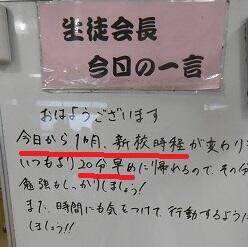 生徒会長
今日の一言
おはようございます
今日から1ヵ月、新校時程が変わり
いつもより20分早めに帰れるので、その分
勉強もしっかりしましょう!
また、時間にも気をつけて、行動するように
しましょう!!